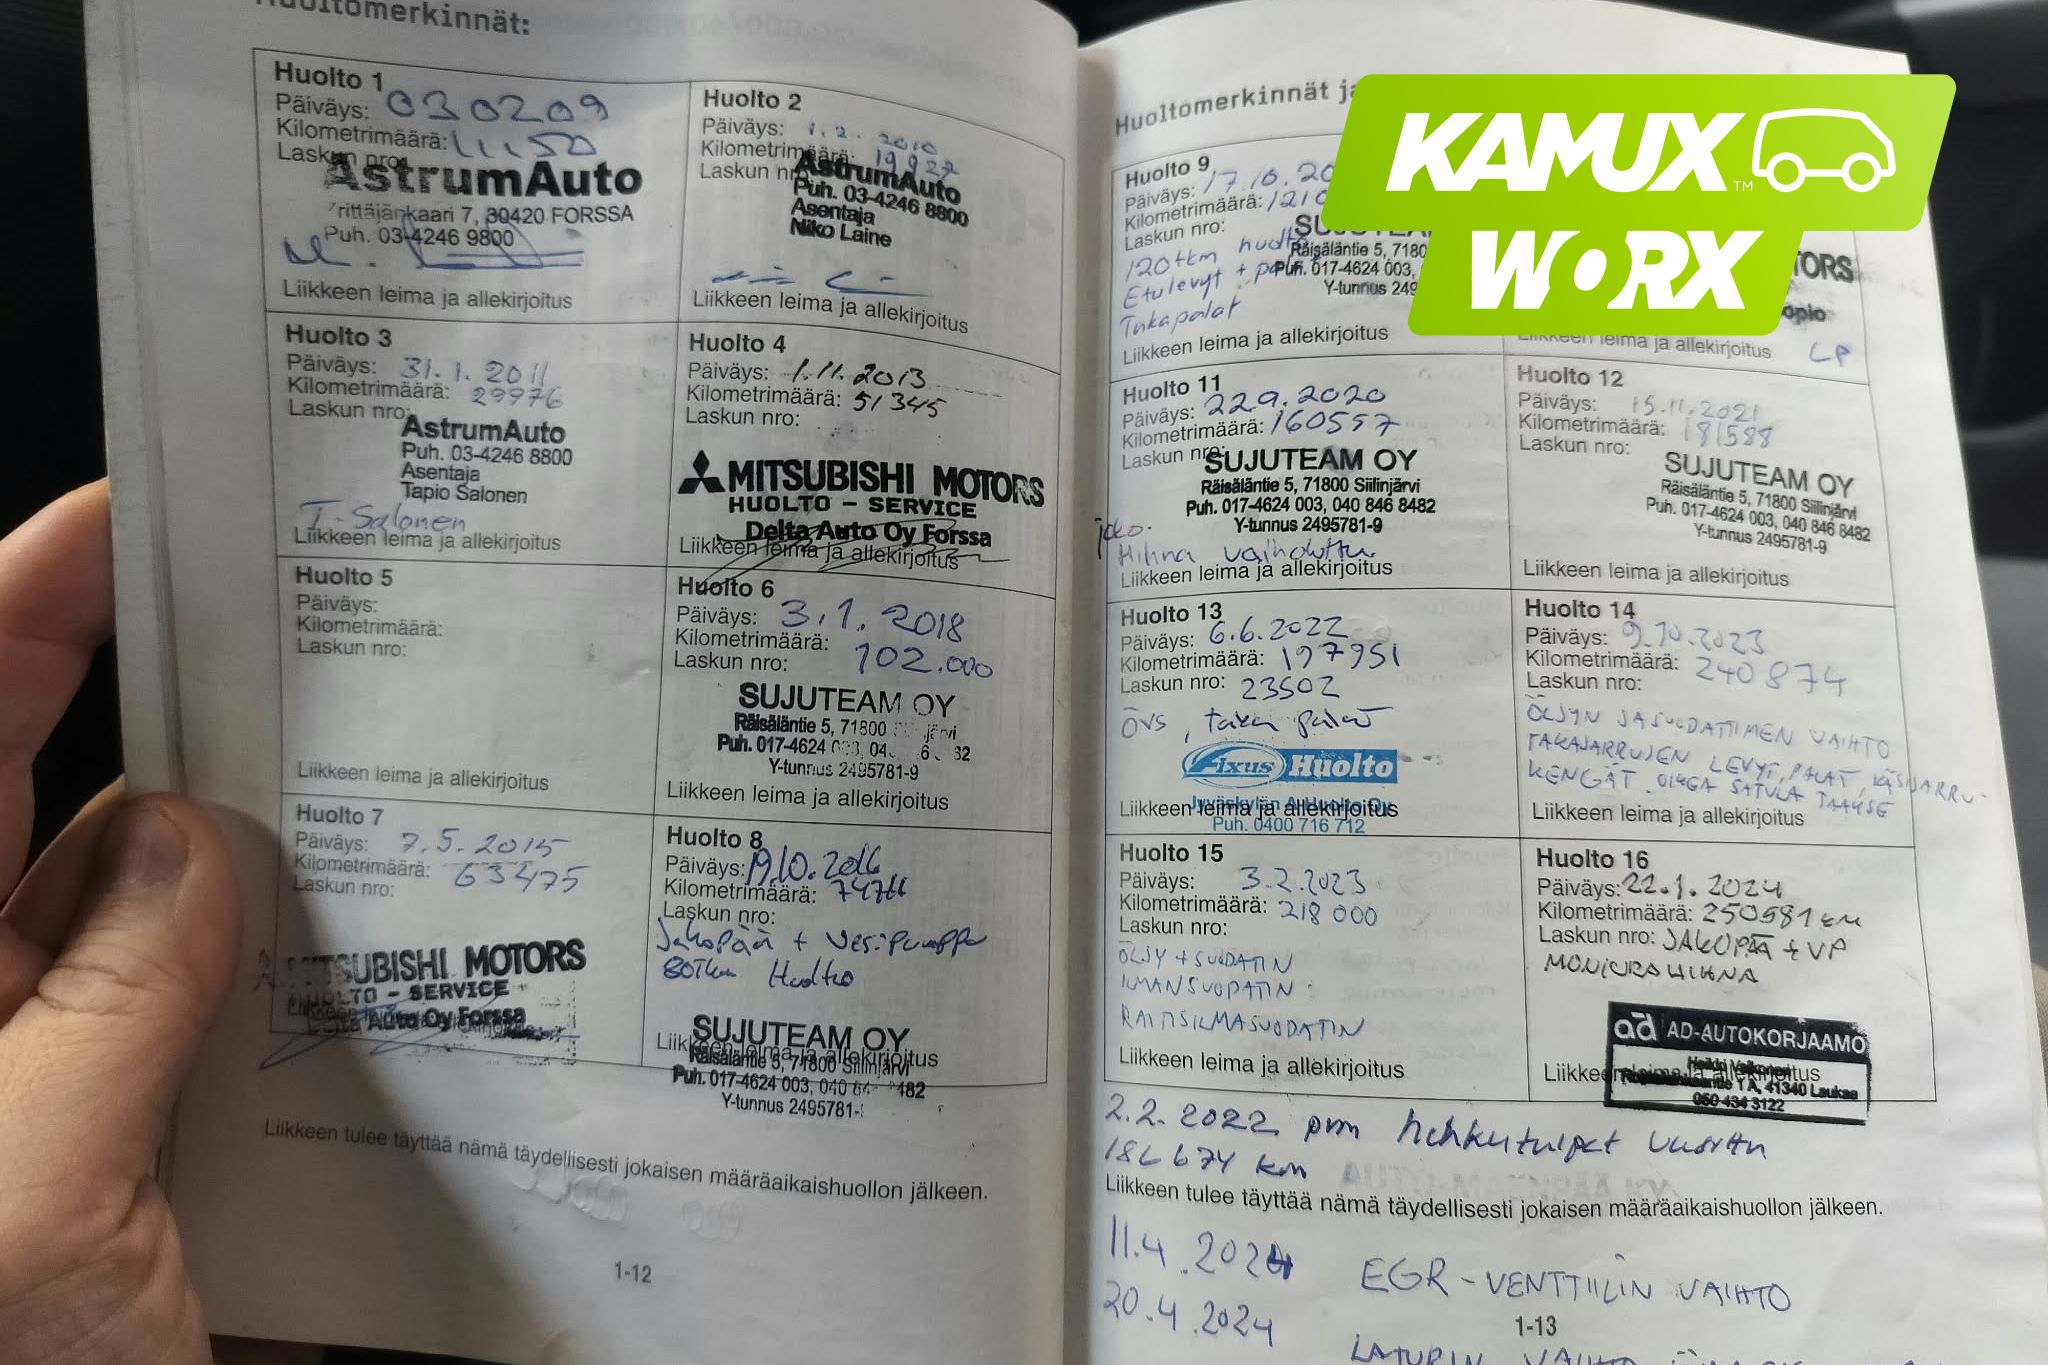 Huoltomerkinnät:
Huolto 1
Päiväys: 030209
Kilometrimäärä: 11150
Laskun nro:
AstrumAuto
Yrittäjänkaari 7, 30420 FORSSA
Puh. 03-4246 9800
Liikkeen leima ja allekirjoitus
Huolto 2
Päiväys: 1.2.2010
Kilometrimäärä: 19927
Laskun nro:
AstrumAuto
Puh. 03-4246 8800
Asentaja
Niko Laine
Liikkeen leima ja allekirjoitus
Huolto 3
Päiväys: 31.1.2011
Kilometrimäärä: 29976
Laskun nro:
AstrumAuto
Puh. 03-4246 8800
Asentaja
Tapio Salonen
T. Salonen
Liikkeen leima ja allekirjoitus
Huolto 4
Päiväys: 1.11.2013
Kilometrimäärä: 51345
Laskun nro:
MITSUBISHI MOTORS
HUOLTO - SERVICE
Delta Auto Oy Forssa
Liikkeen leima ja allekirjoitus
Huolto 5
Päiväys:
Kilometrimäärä:
Laskun nro:
Liikkeen leima ja allekirjoitus
Huolto 6
Päiväys: 3.1.2018
Kilometrimäärä: 102.000
Laskun nro:
SUJUTEAM OY
Räisäläntie 5, 71800
Puh. 017-4624
Y-tunnus 2495781-9
Liikkeen leima ja allekirjoitus
Huolto 7
Päiväys: 7.5.2015
Kilometrimäärä: 63475
Laskun nro:
MITSUBISHI MOTORS
HUOLTO - SERVICE
Delta Auto Oy Forssa
Huolto 8
Päiväys: 19.10.2016
Kilometrimäärä:
Laskun nro:
Jakopää + vesipumppu
80Tkm Huolto
SUJUTEAM OY
Liikkeen leima ja allekirjoitus
Räisäläntie 5, 71800 Siilinjärvi
Puh. 017-4624 003, 040
Y-tunnus 2495781-
Liikkeen tulee täyttää nämä täydellisesti jokaisen määräaikaishuollon jälkeen.
1-12
Huoltomerkinnät
KAMUX™
WORX
Huolto 9
Päiväys: 17.10.20
Kilometrimäärä: 1210
Laskun nro:
120tkm huolto
Räisäläntie 5, 7180
Puh. 017-4624 003,
Etulevyt + palat
Y-tunnus 249
Takapalat
Liikkeen leima ja allekirjoitus
TORS
Liikkeen leima ja allekirjoitus
LP
Huolto 11
Päiväys: 22.9.2020
Kilometrimäärä: 160557
Laskun nro:
SUJUTEAM OY
Räisäläntie 5, 71800 Siilinjärvi
Puh. 017-4624 003, 040 846 8482
Y-tunnus 2495781-9
jako.
Hihna vaihdettu
Liikkeen leima ja allekirjoitus
Huolto 12
Päiväys: 15.11.2021
Kilometrimäärä: 181588
Laskun nro:
SUJUTEAM OY
Räisäläntie 5, 71800 Siilinjärvi
Puh. 017-4624 003, 040 846 8482
Y-tunnus 2495781-9
Liikkeen leima ja allekirjoitus
Huolto 13
Päiväys: 6.6.2022
Kilometrimäärä: 197951
Laskun nro: 23502
ÖVS, taka palat
Fixus Huolto
Liikkeen leima ja allekirjoitus
Jyväskylän A-Huolto Oy
Puh. 0400 716 712
Huolto 14
Päiväys: 9.10.2023
Kilometrimäärä: 240874
Laskun nro:
ÖLJYN JA SUODATTIMEN VAIHTO
TAKAJARRUJEN LEVYT, PALAT, KÄSIJARRU-
KENGÄT. OIKEA SATULA TAAKSE
Liikkeen leima ja allekirjoitus
Huolto 15
Päiväys: 3.2.2023
Kilometrimäärä: 218 000
Laskun nro:
ÖLJY + SUODATIN
ILMANSUODATIN
RAITISILMASUODATIN
Liikkeen leima ja allekirjoitus
Huolto 16
Päiväys: 22.1.2024
Kilometrimäärä: 250581 km
Laskun nro: JAKOPÄÄ + VP
MONIURAHIHNA
ad AD-AUTOKORJAAMO
Liikkeen leima ja allekirjoitus
1 A, 41340 Laukaa
050 434 3122
2.2.2022 pvm hehkutulpat uusittu
186674 km
Liikkeen tulee täyttää nämä täydellisesti jokaisen määräaikaishuollon jälkeen.
11.4.2024 EGR-VENTTIILIN VAIHTO
1-13
20.4.2024 LATURIN VAIHTO